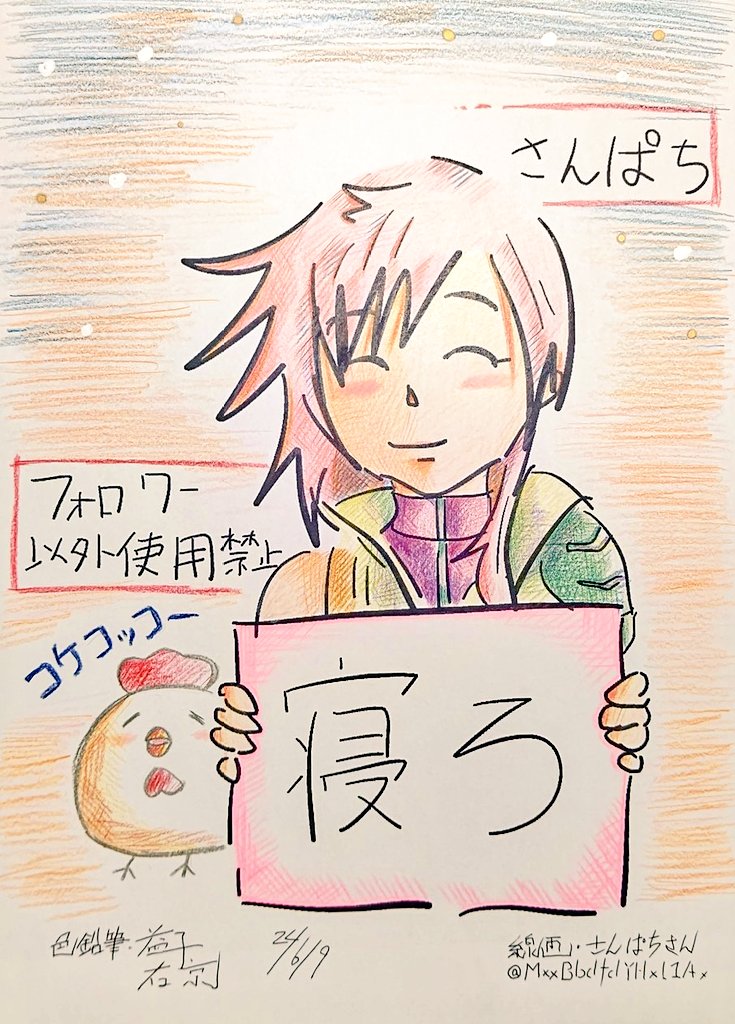 さんぱち
フォロワー
以外使用禁止
コケコッコー
寝ろ
色鉛筆:益子
右京
24/6/9
線画・さんぱちさん